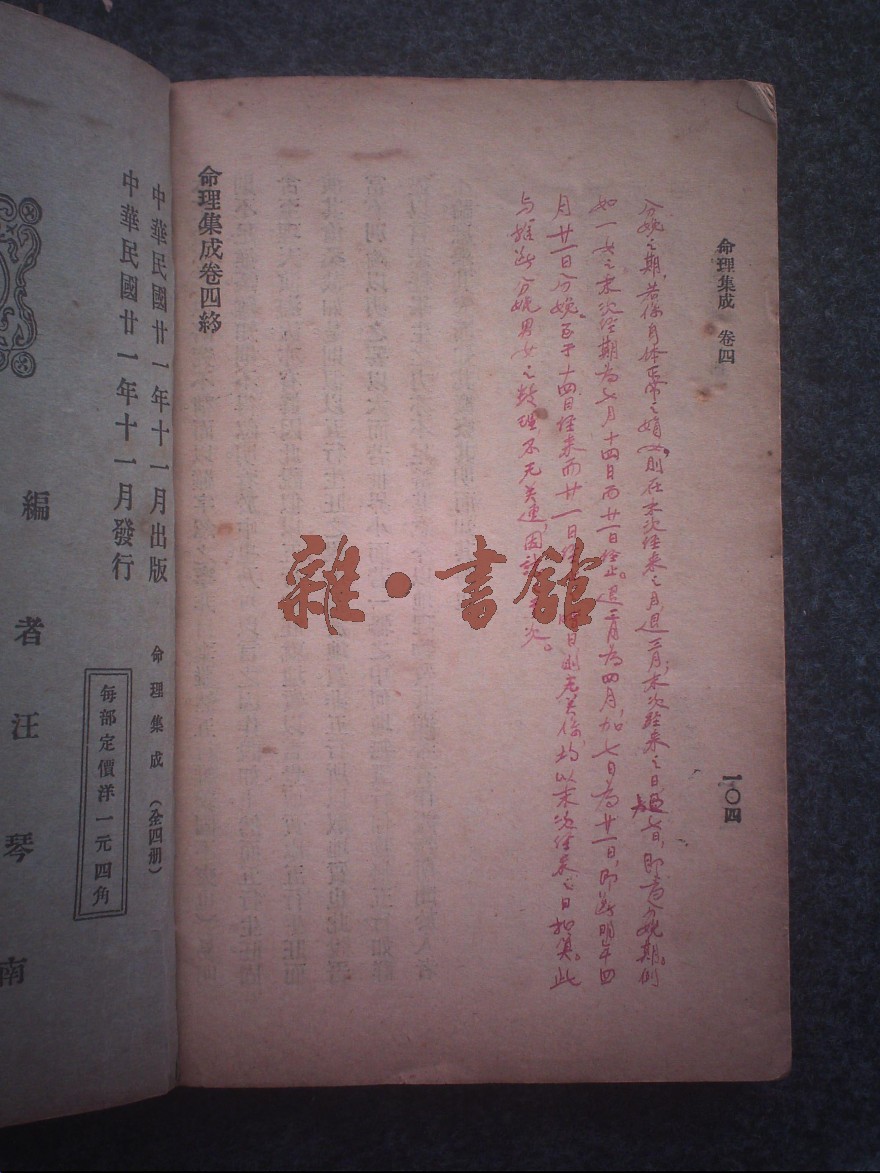 命理集成 卷四
一〇四
分娩之期，若係月体正常之婦女，則在末次经来之月，退三月，末次经来之日 七日，即為分娩期。例
如一女之末次经期為七月十四日而廿一日经止。退三月為四月，加七日為廿一日，即断明年四
月廿一日分娩。至于十四日经来而廿一日 日則无关係，均以末次经来之日起算。此
与推断分娩男女之数理不无关連，因 次。
命理集成卷四終
中華民國廿一年十一月出版
中華民國廿一年十一月發行
命理集成（全四册）
每部定價洋一元四角
編者汪琴南
雜·書館